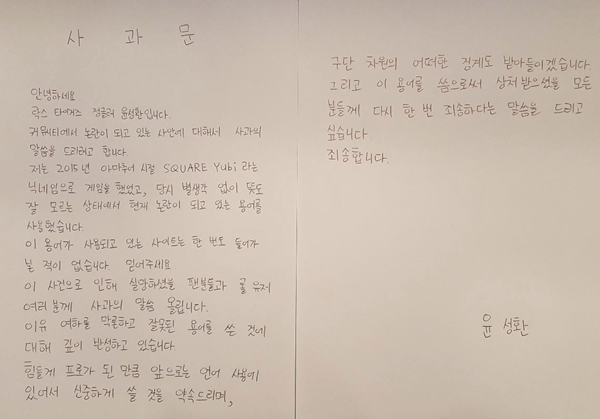 사 과 문
안녕하세요
락스 타이거즈 정글러 윤성환입니다.
커뮤니티에서 논란이 되고 있는 사안에 대해서 사과의
말씀을 드리려고 합니다.
저는 2015년 아마추어 시절 SQUARE Yubi 라는
닉네임으로 게임을 했었고, 당시 별생각 없이 뜻도
잘 모르는 상태에서 현재 논란이 되고 있는 용어를
사용했습니다.
이 용어가 사용되고 있는 사이트는 한 번도 들어가
본 적이 없습니다. 믿어주세요
이 사건으로 인해 실망하셨을 팬분들과 롤 유저
여러분께 사과의 말씀 올립니다.
이유 여하를 막론하고 잘못된 용어를 쓴 것에
대해 깊이 반성하고 있습니다
힘들게 프로가 된 만큼 앞으로는 언어 사용에
있어서 신중하게 쓸 것을 약속드리며,
구단 차원의 어떠한 징계도 받아들이겠습니다.
그리고 이 용어를 씀으로써 상처 받으셨을 모든
분들께 다시 한 번 죄송하다는 말씀을 드리고
싶습니다.
죄송합니다.
윤 성환